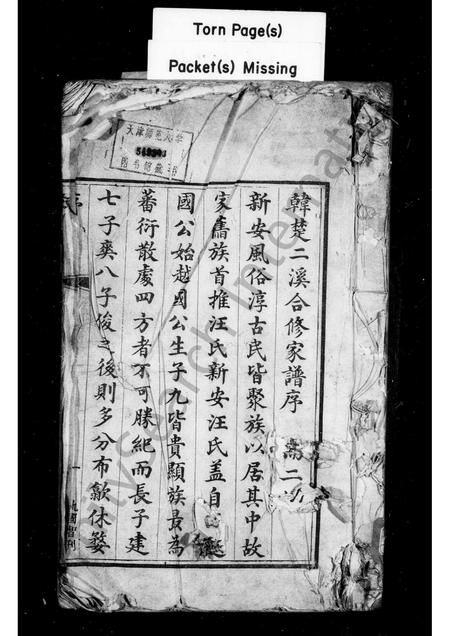 Torn Page(s)
Packet(s) Missing
天津師范大学
图书馆藏书
韓楚二溪合修家譜序
新安風俗淳古民皆聚族以居其中故
家舊族首推汪氏新安汪氏蓋自越
國公始越國公生子九皆貴顯族最為
蕃衍散處四方者不可勝紀而長子建
七子爽八子俊之後則多分布歙休婺
序
一